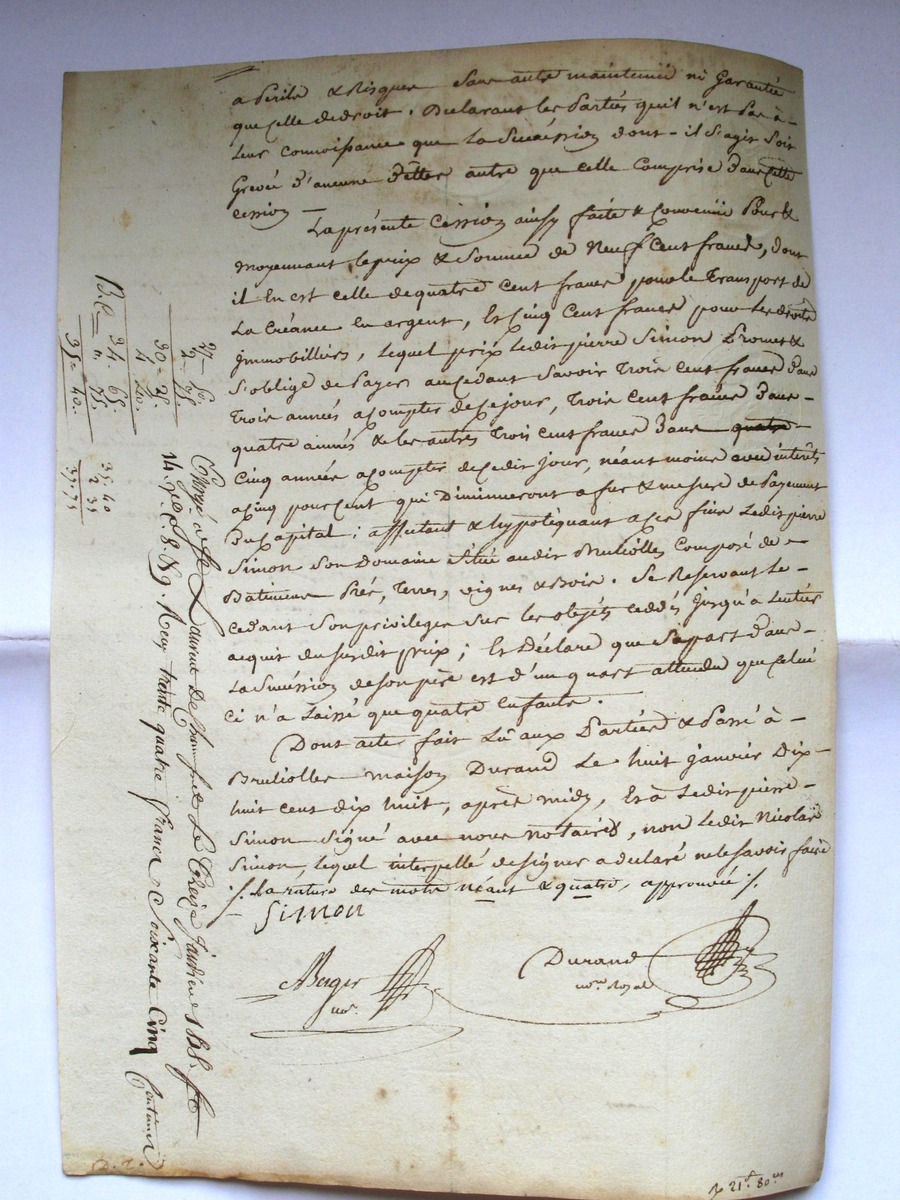 a Perils & Risques sans autre maintenüe ni Garantie
que celle de droit. Declarant les Parties qu'il n'est Pas à
Leur connoissance que La Succession dont il s'agit soit
Grevée d'aucune dettes autre que celle Comprise dans cette
cession
La présente Cession ainsy faite & Convenüe Pour &
moyennant le prix & Somme de Neuf Cent francs, dont
il En est celle de quatre cent francs pour le Transport de
La Créance En argent, Et Cinq Cent francs pour les droits
immobilliers, Lequel prix Ledit pierre Simon Promet &
s'oblige de Payer au Cédant Savoir Trois Cent francs dans
Trois années a compter de ce jour, Trois Cent francs dans
quatre années & les autres Trois Cent francs dans quatre
Cinq années a compter de ce dit jour, néant moins avec intérêts
a cinq pour cent qui Diminueront a fur & mesure de Payement
du Capital; affectant & hypotéquant a ces fins Ledit pierre
Simon Son Domaine Situé audit Brullioles Composé de
Bâtiments Prés, Terres, vignes & Bois. Se Reservant Le
cedant Son privilege sur les objets ceddés jusqu'a L'entier
acquit du susdit prix; Et Déclare que sa part dans
La Succession de son père est d'un quart attendu que celui
ci n'a Laissé que quatre Enfants.
Dont acte fait Lû aux Parties & Passé à
Brullioles maison Durand Le huit janvier Dix
huit cent dix huit, après midy, Et à Ledit pierre
Simon Signé avec nous Notaires, non Ledit Nicolas
Simon, lequel interpellé de signer a déclaré ne le savoir faire
/. La rature des mots néant & quatre, approuvée /.
Simon
Berger
nore
Durand
nore Royal
St Laurent de Chamousset Le Treize Janvier 1818. fo
14. Ro C. 8. & 9. Reçu trente quatre francs Soixante Cinq Centimes
27. 50.
30. 25.
4. 40.
34. 65.
35. 40.
35. 40
2 35
37. 75
21f. 80c